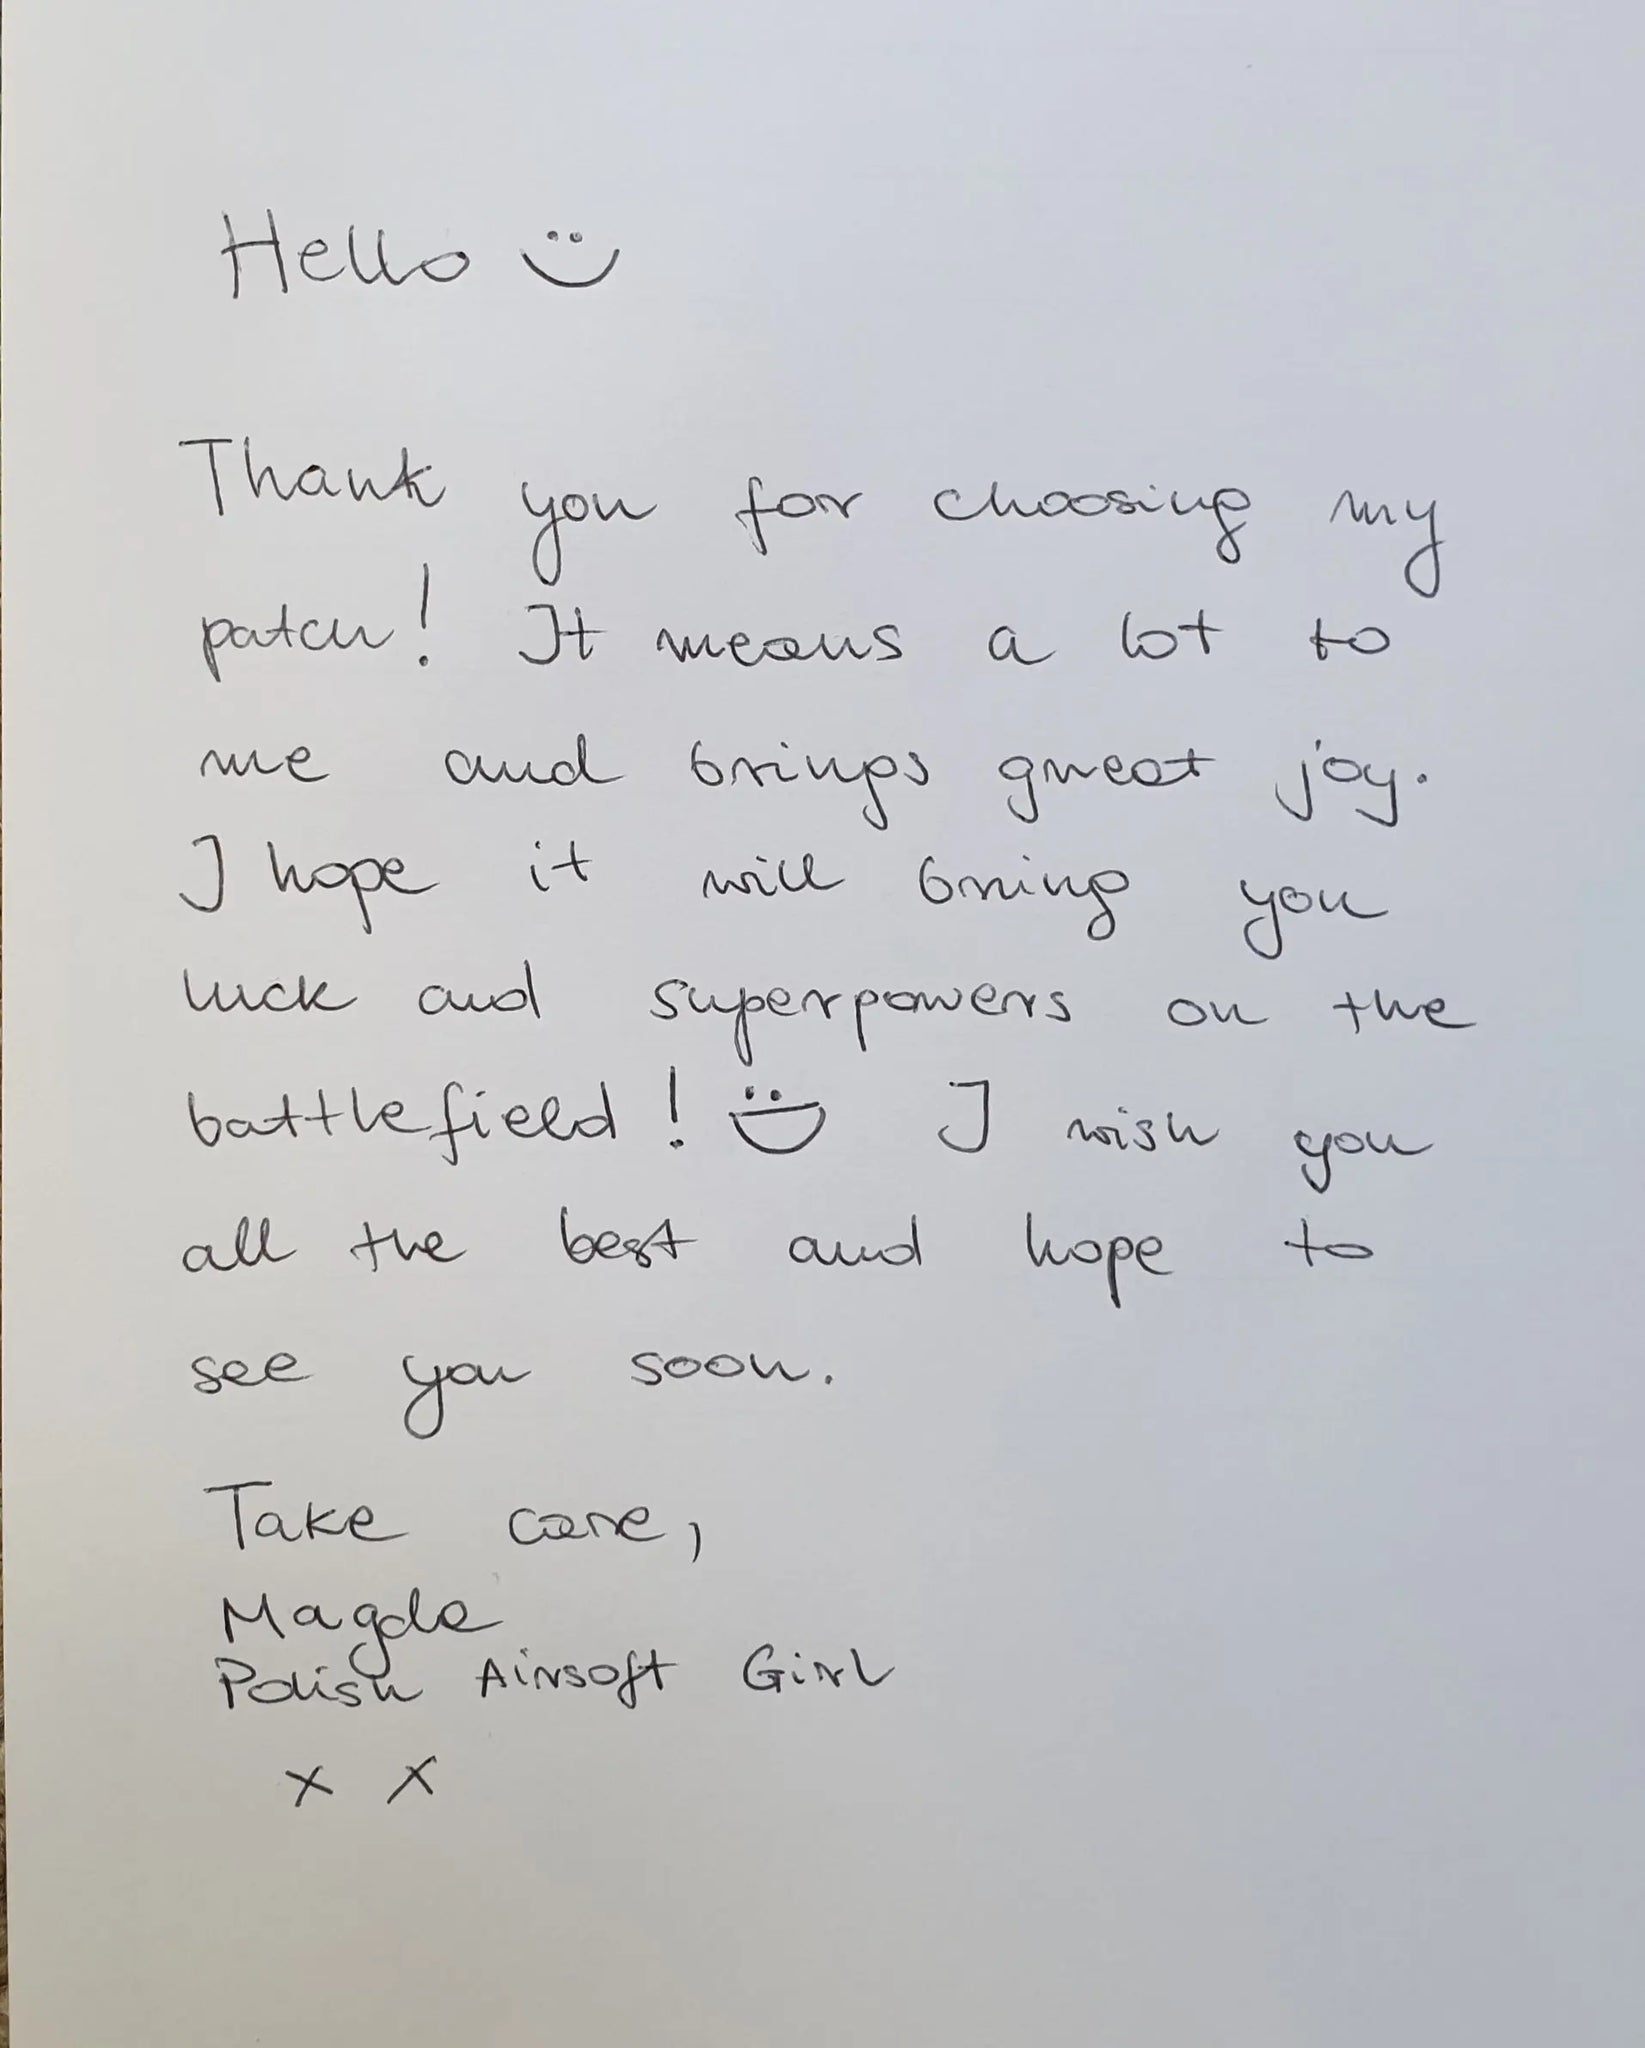 Hello
Thank you for choosing my
patch! It means a lot to
me and brings great joy.
I hope it will bring you
luck and superpowers on the
battlefield! I wish you
all the best and hope to
see you soon.
Take care,
Magda
Polish Airsoft Girl
x x